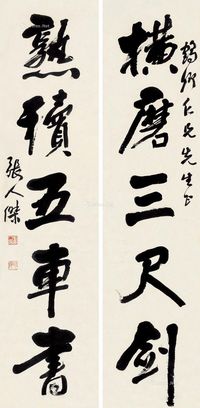 仁兄先生正
橫磨三尺劍
熟讀五車書
張人傑